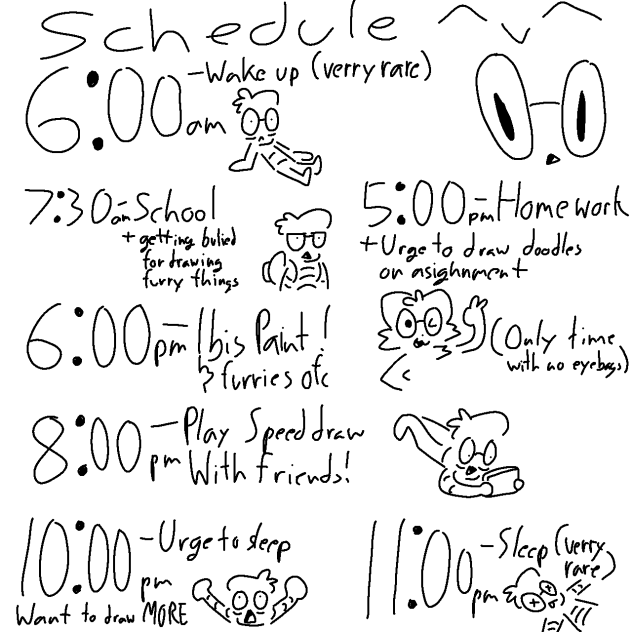 Schedule ^v^
6:00am -Wake up (verry rare)
7:30am-School
+getting bulied
for drawing
furry things
5:00pm-Homework
+Urge to draw doodles
on asighnment
6:00pm-Ibis Paint!
& furries ofc
(Only time
with no eyebags)
8:00pm-Play Speed draw
With friends!
10:00pm-Urge to sleep
Want to draw MORE
11:00pm-Sleep (verry
rare)